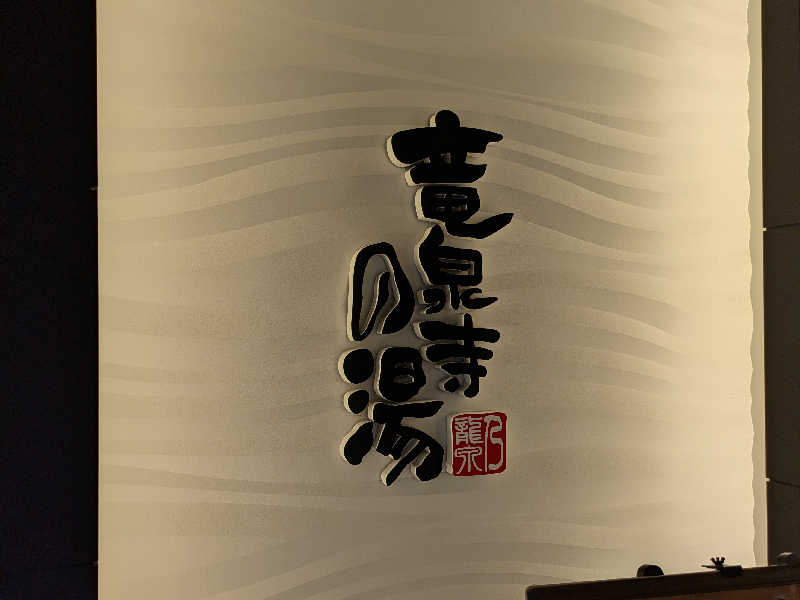 竜泉寺
の湯
乃
龍泉